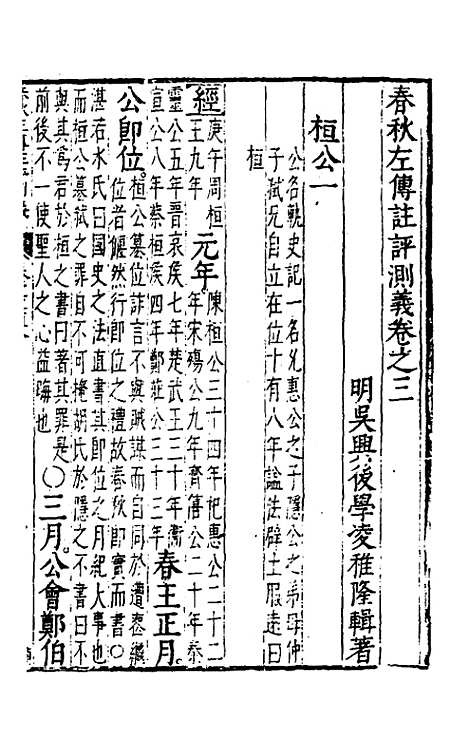 春秋左傳註評測義卷之三
明吳興後學凌稚隆輯著
桓公一
公名軌史記一名允惠公之子隱公之弟母仲
子弒兄自立在位十有八年諡法辟土服遠曰
桓
經
庚午周桓
王九年
元年
陳桓公三十四年杞惠公二十二
年宋殤公九年齊僖公二十年秦
靈公五年晉哀侯七年楚武王三十年衞
宣公八年蔡桓侯四年鄭莊公三十三年
春王正月
公即位
桓公篡位謬言不與賊謀而自同於遭喪繼
位者儼然行即位之禮故春秋即實而書○
湛若水氏曰國史之法直書其即位之月紀大事也
而桓公篡弒之罪自不可掩胡氏於隱之不書曰不
與其爲君於桓之書曰著其罪是
前後不一使聖人之心益晦也
○三月公會鄭伯